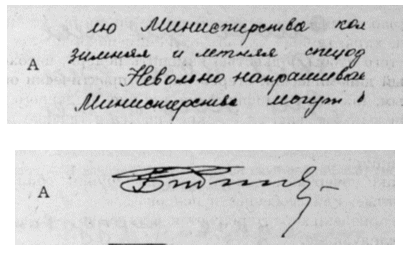 А
лю Министерства кол
зимняя и летняя спецод
Невольно напрашивае
Министерства могут в
А